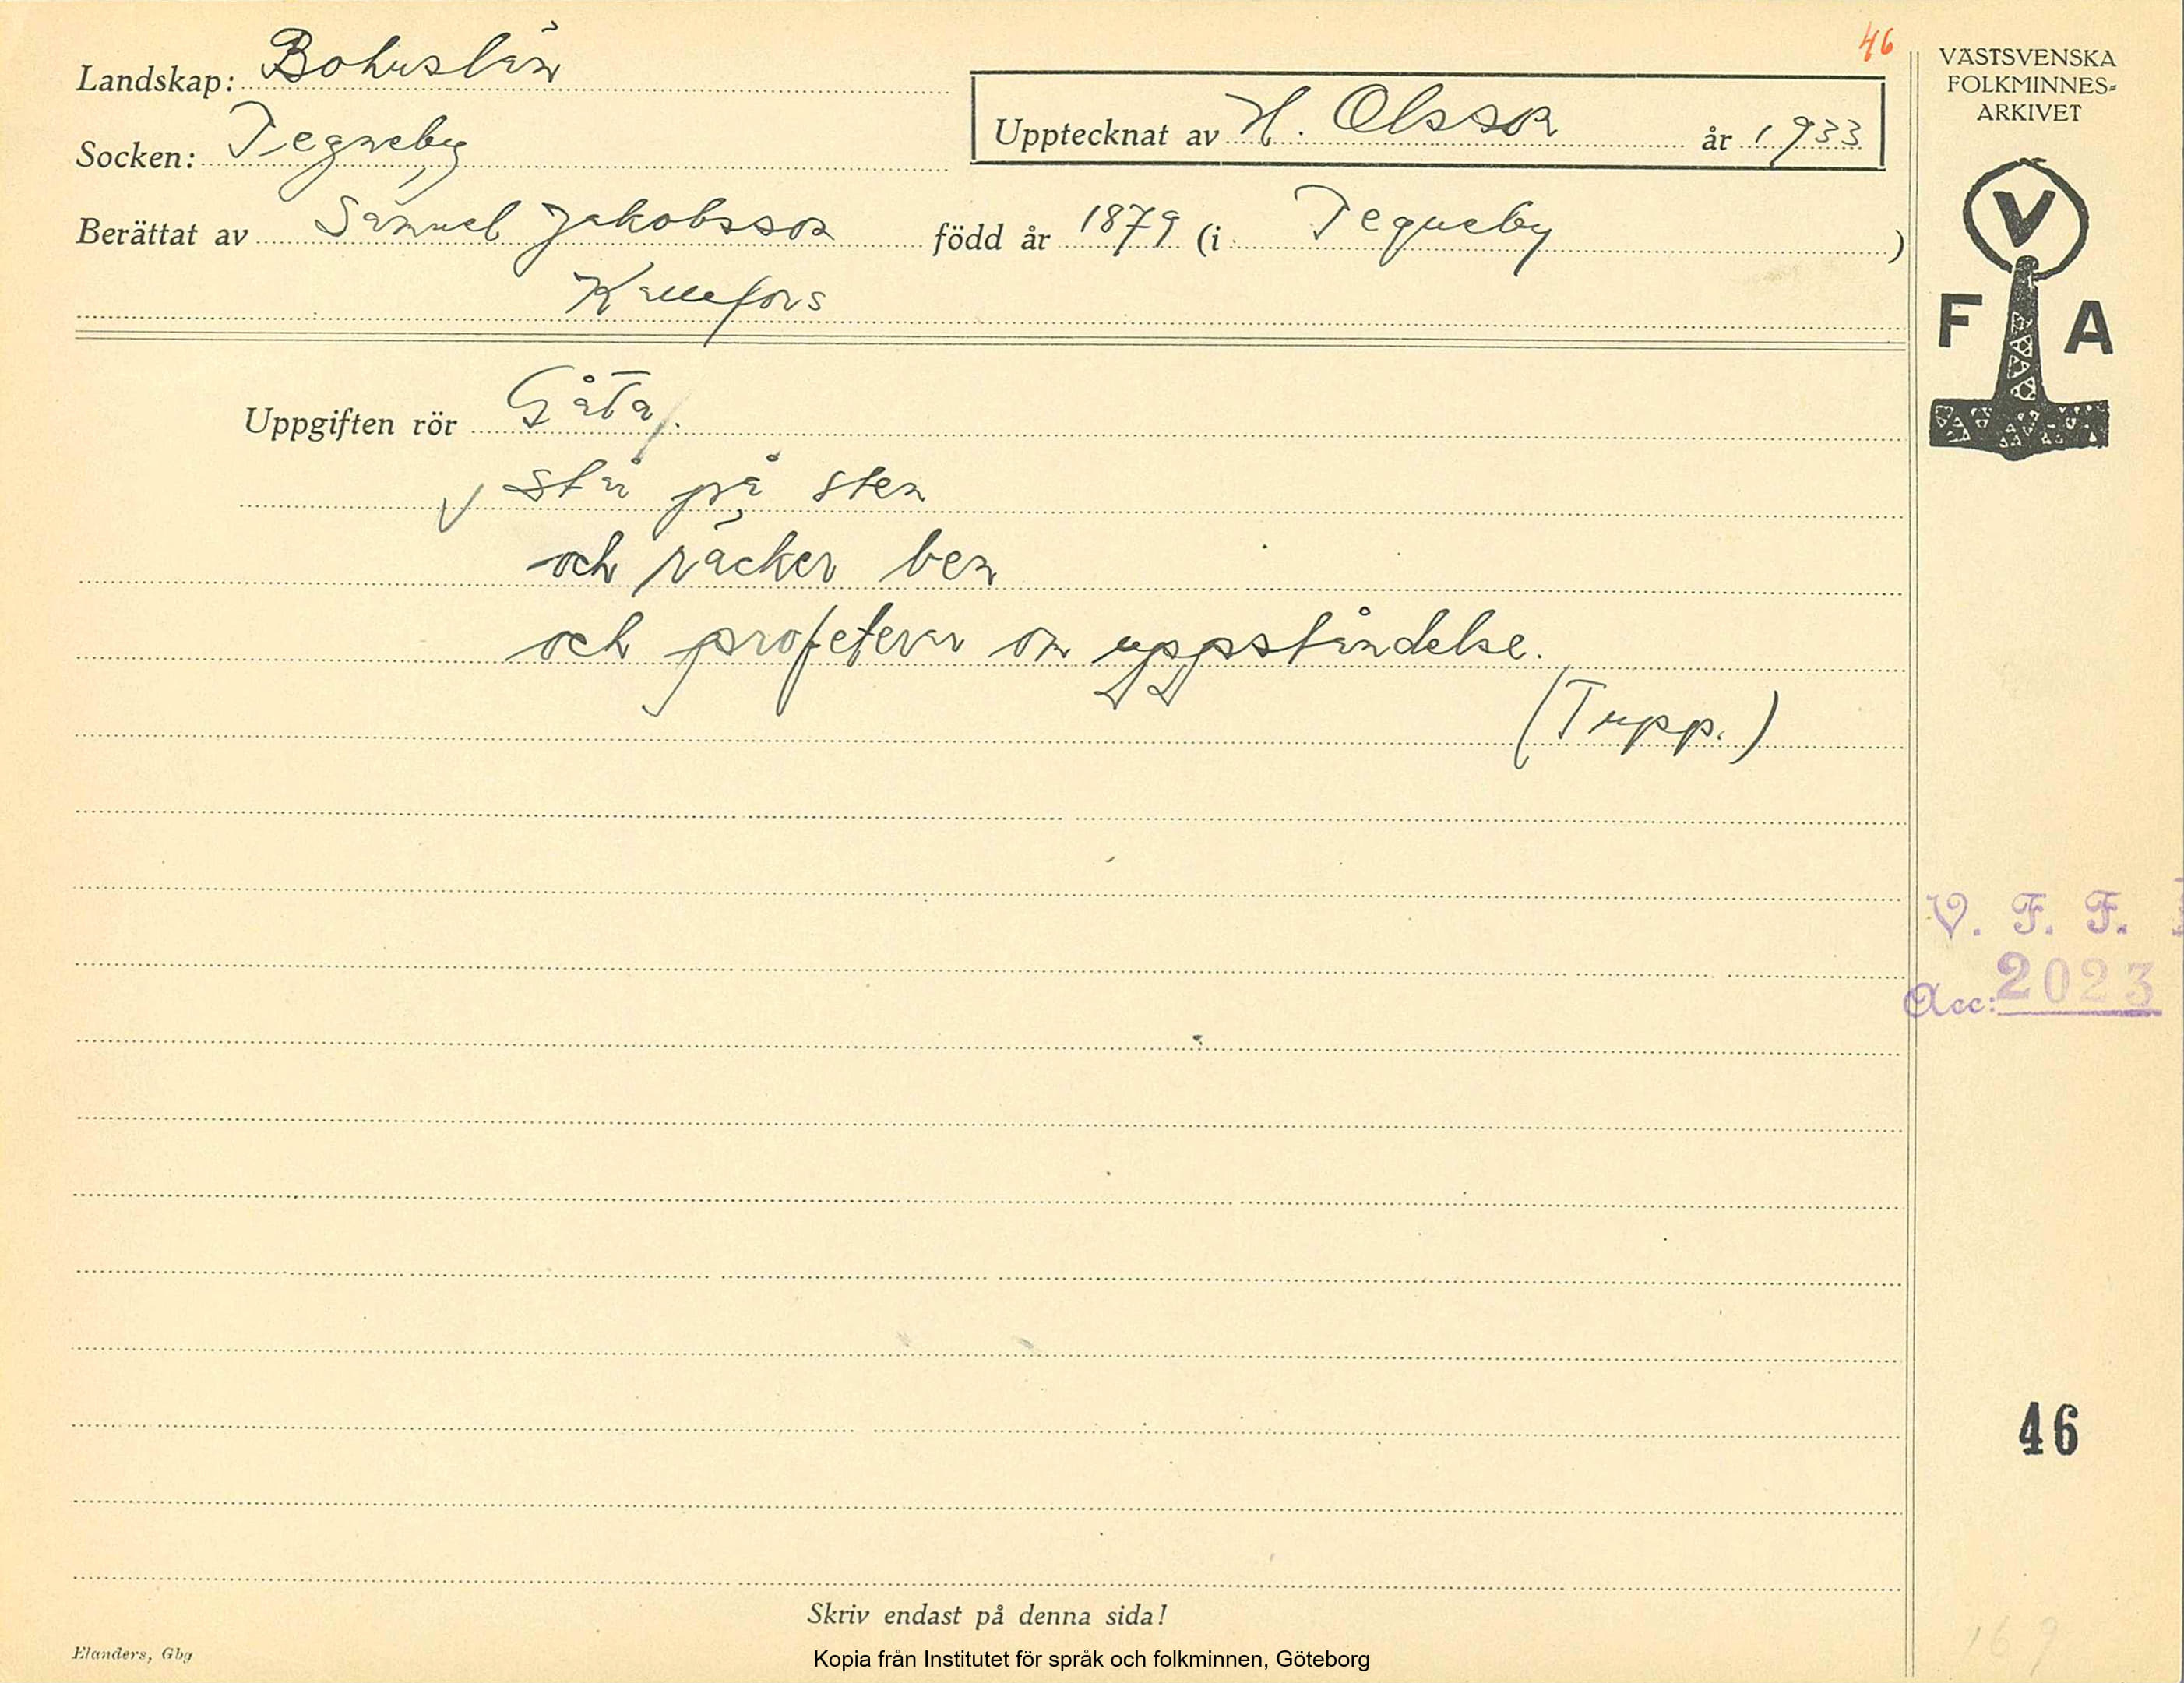 46
Landskap: Bohuslän
Socken: Tegneby
Upptecknat av H. Olsson år 1933
Berättat av Samuel Jakobsson född år 1879 (i Tegneby)
Kållefors
Uppgiften rör Gåta.
Står på sten
och räcker ben
och profeterar om uppståndelse.
(Tupp.)
VÄSTSVENSKA
FOLKMINNES-
ARKIVET
V
F A
V. F. F.
Acc: 2023
46
169
Skriv endast på denna sida!
Elanders, Gbg
Kopia från Institutet för språk och folkminnen, Göteborg